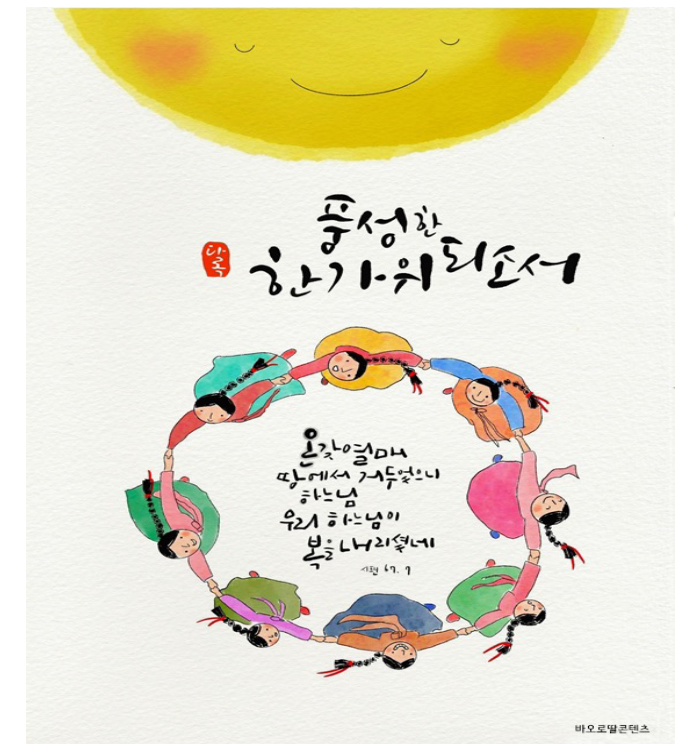 풍성한
한가위 되소서
다록
온갖 열매
땅에서 거두었으니
하느님
우리 하느님이
복을 내리셨네
시편 67. 7
바오로딸콘텐츠